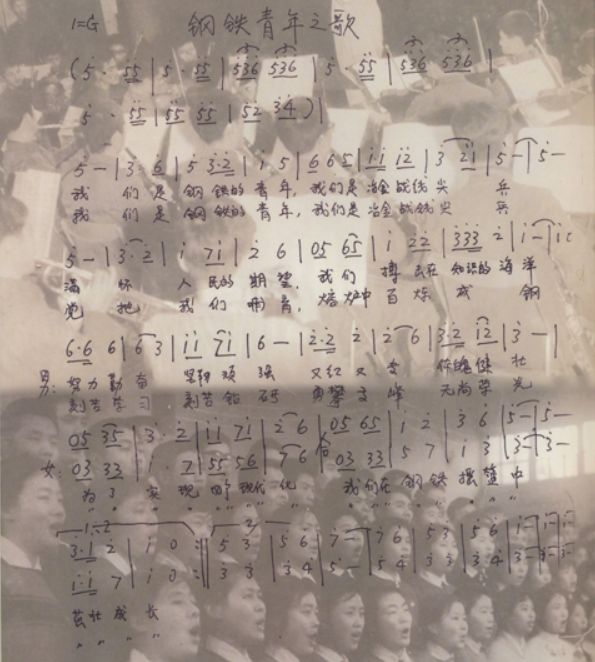 1=G 钢铁青年之歌
(5· 55 | 5· 55 | 536 536 | 5· 55 | 536 536 |
5· 55 | 55 55 | 52 34 ) |
5 — | 3· 6 | 5 3·2 | 1 5 | 6 65 | 11 12 | 3 21 | 5 — | 5 —
我 们 是 钢 铁的 青 年, 我们是 冶金 战线 尖 兵
我 们 是 钢 铁的 青 年, 我们是 冶金 战线 尖 兵
5 — | 3·2 | 1 71 | 2 6 | 05 65 | 1 22 | 333 2 | 1 — | 1
满 怀 人 民的 期 望, 我 们 搏击在 知识的 海 洋
党 把 我 们 哺 育, 熔炉中 百 炼 成 钢
6·6 6 | 6 3 | 11 71 | 6 — | 2·2 2 | 2 6 | 3·2 12 | 3 — |
男: 努力 勤 奋 坚韧 顽 强 又红 又 专 体魄 健 壮
刻苦 学 习 刻苦 钻 研 勇攀 高 峰 无尚 荣 光
05 35 | 3· 2 | 11 71 | 2 6 | 05 65 | 1 2 | 3 6 | 5 — | 5 —
女: 03 33 | 1· 7 | 55 56 | 7 6 | 合 03 33 | 5 7 | 1 3 | 3 — | 3 —
为了 实 现 四个 现代 化 我们在 钢 铁 摇 篮 中
" " " " " " " " " " " " " "
1.2 3
3·1 2 | 1 0 :‖ 5 3 | 5 6 | 7 — | 7 6 | 5 3 | 5 6 | 1 — | 1 — | 1 —
1·1 7 | 1 0 :‖ 3 3 | 3 4 | 5 — | 5 4 | 3 3 | 3 4 | 3 — | 3 — | 3 —
茁壮 成 长
" " " "